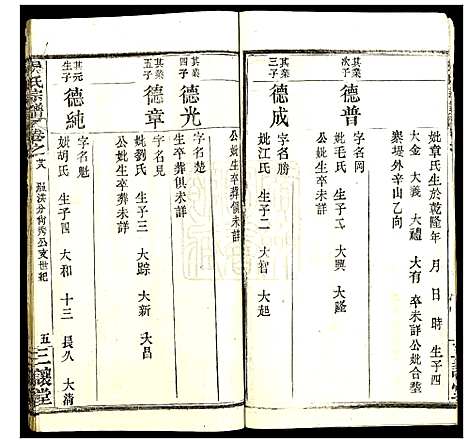 妣章氏生於乾隆年 月 日 時 生子四
大金 大義 大禮 大有 卒未詳公妣合塟
寨堤外辛山乙向
其榮次子
德普
字名岡
妣毛氏 生子二 大興 大隆
公妣生卒葬俱未詳
其榮三子
德成
字名勝
妣江氏 生子二 大智 大起
公妣生卒葬俱未詳
其榮四子
德光
字名楚
生卒葬俱未詳
其榮五子
德章
字名見
妣劉氏 生子三 大踪 大新 大昌
公妣生卒葬未詳
其元生子
德純
字名魁
妣胡氏 生子四 大和 十三 長久 大清
吴氏宗譜
卷之
五
三讓堂